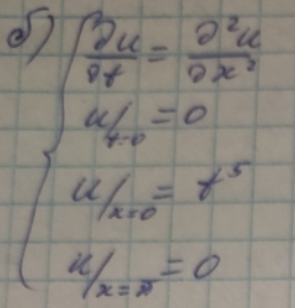 б) ∂u/∂t = ∂²u/∂x²
u/t=0 = 0
u/x=0 = t⁵
u/x=π = 0